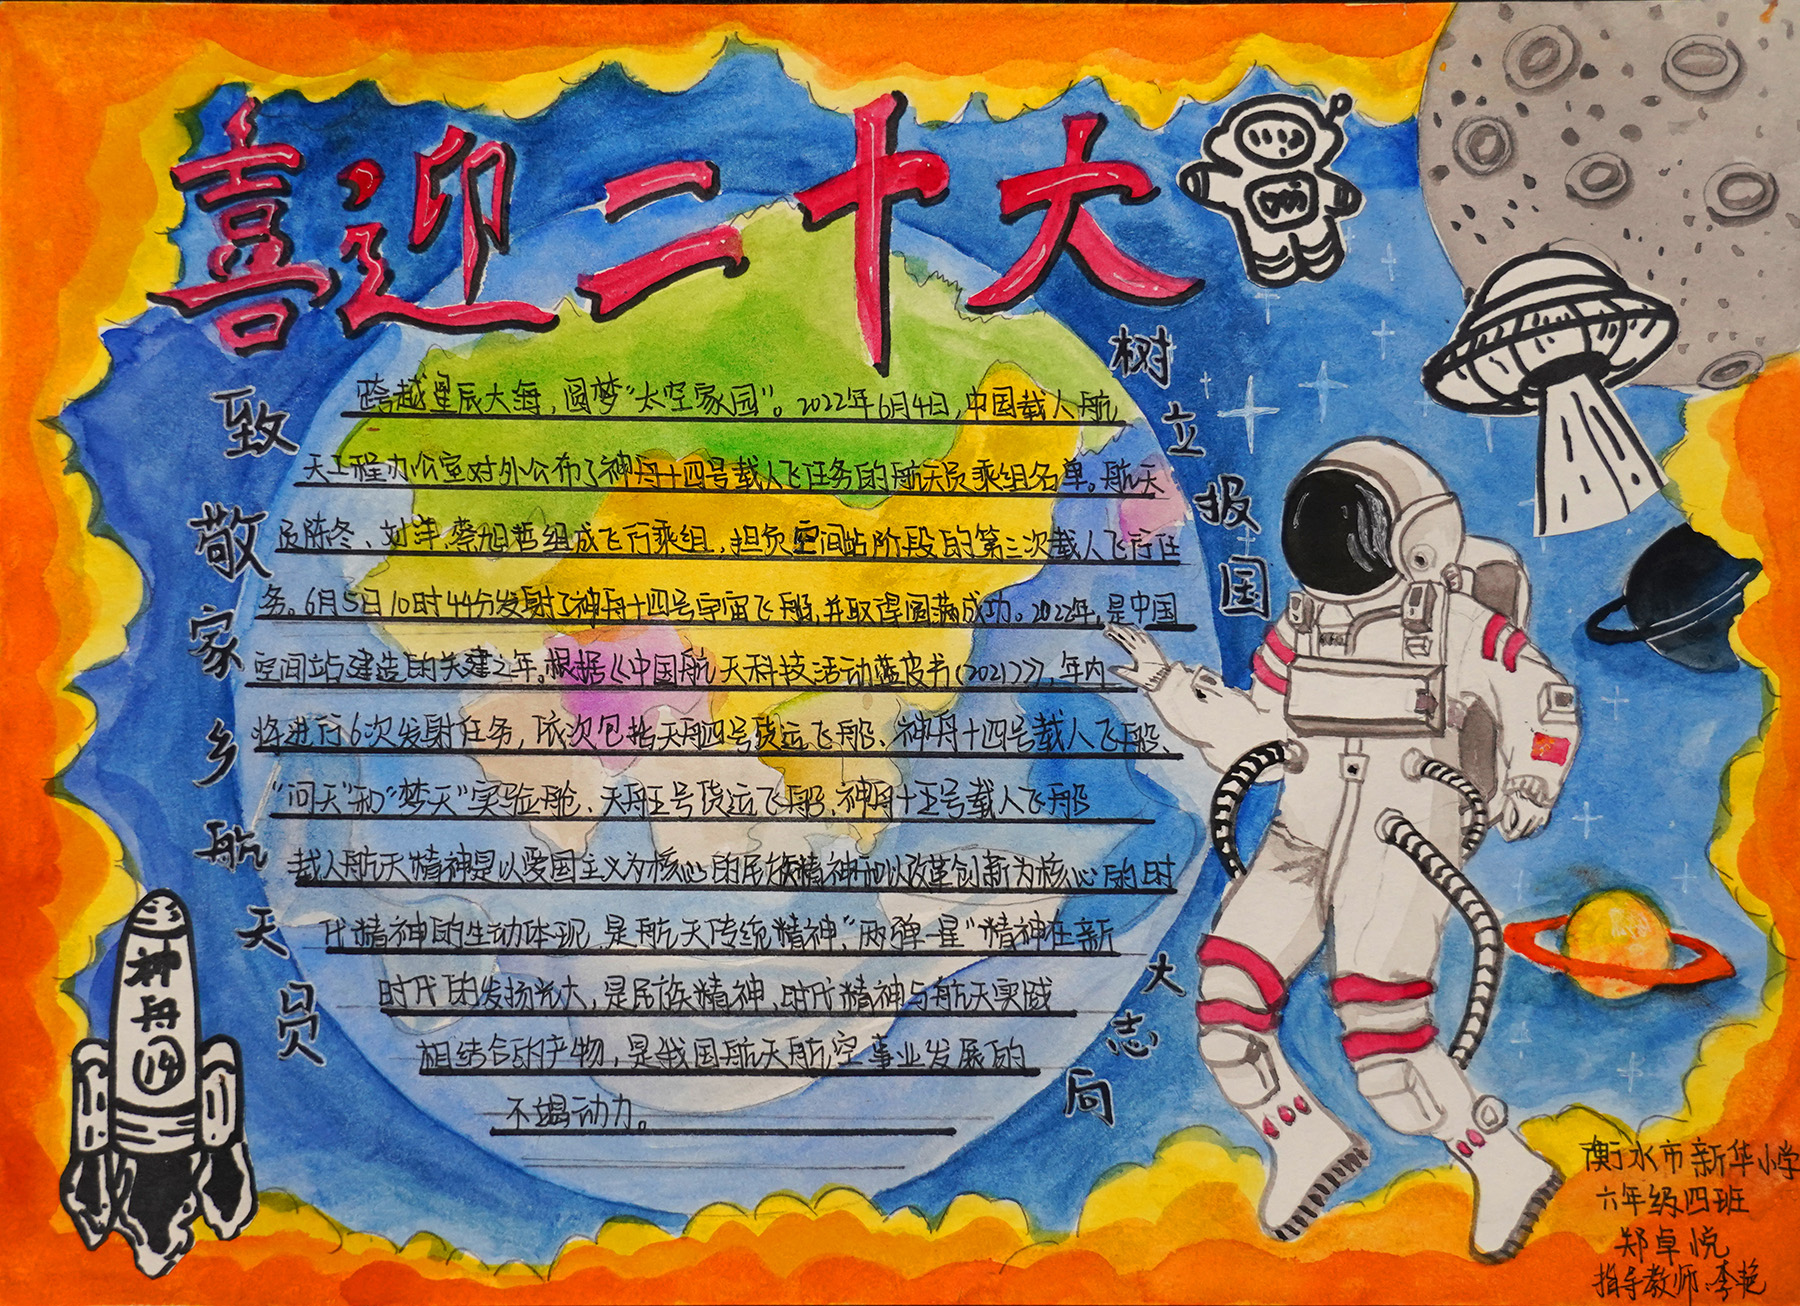 喜迎二十大
致敬家乡航天员
树立报国大志向
跨越星辰大海，圆梦“太空家园”。2022年6月4日，中国载人航
天工程办公室对外公布了神舟十四号载人飞任务的航天员乘组名单。航天
员陈冬、刘洋、蔡旭哲组成飞行乘组，担负空间站阶段的第三次载人飞行任
务。6月5日10时44分发射了神舟十四号宇宙飞船，并取得圆满成功。2022年，是中国
空间站建造的关建之年。根据《中国航天科技活动蓝皮书(2021)》，年内
将进行6次发射任务，依次包括天舟四号货运飞船、神舟十四号载人飞船、
“问天”和“梦天”实验舱、天舟五号货运飞船、神舟十五号载人飞船
载人航天精神是以爱国主义为核心的民族精神和以改革创新为核心的时
代精神的生动体现，是航天传统精神，“两弹一星”精神在新
时代的发扬光大，是民族精神、时代精神与航天实践
相结合的产物，是我国航天航空事业发展的
不竭动力。
神舟
14
衡水市新华小学
六年级四班
郑卓悦
指导教师：李艳